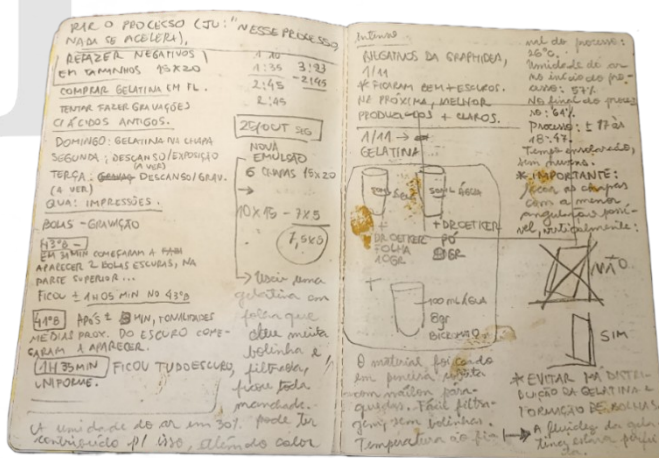 RAR O PROCESSO (JU: "NESSE PROCESSO
NADA SE ACELERA),
REFAZER NEGATIVOS
EM TAMANHOS 15X20
COMPRAR GELATINA EM FL.
TENTAR FAZER GRAVAÇÕES
C/ ÁCIDOS ANTIGOS.
DOMINGO: GELATINA NA CHAPA
SEGUNDA: DESCANSO/EXPOSIÇÃO
(A VER)
TERÇA. DESCANSO/GRAV.
(A VER)
QUA: IMPRESSÕES.
BOLAS - GRAVAÇÃO
43ºB -
EM 30MIN COMEÇARAM A
APARECER 2 BOLAS ESCURAS, NA
PARTE SUPERIOR...
FICOU ± 1H05 MIN NO 43ºB
41ºB APÓS ± MIN, TONALIDADES
MÉDIAS PROX. DO ESCURO COME-
ÇARAM A APARECER.
1H 35MIN FICOU TUDO ESCURO,
UNIFORME.
A umidade do ar em 30% pode ter
contribuído p/ isso, além do calor
1:35
2:45
2:45
25/OUT SEG
NOVA
EMULSÃO
6 CHAPAS 15X20
→
10X15 - 7X5
7,5X5
→ Usei uma
gelatina em
folha que
deu muita
bolinha e,
filtrada,
ficou toda
manchada.
intenso
NEGATIVOS DA GRAPHIDEA,
1/11
* FICARAM BEM + ESCUROS.
NA PRÓXIMA, MELHOR
PRODUZI-LOS + CLAROS.
1/11 →
GELATINA
ÁGUA
+
DR OETKER
FOLHA
10GR
+ DR OETKER
PÓ
GR
+
100ML ÁGUA
8gr
BICROMATO
O material foi coado
em peneira
com nailon pára-
quedas. Fácil filtra-
gem, sem bolinhas.
Temperatura ao fi
nal do processo:
26ºC.
Umidade do ar
no início do pro-
cesso: 57%
No final do proces
so: 64%
Processo: ± 17 às
18:47.
Tempo ensolarado,
sem nuvens.
* IMPORTANTE:
secar as chapas
com a menor
angulação possí-
vel, verticalmente:
NÃO
SIM
* EVITAR NA DISTRI-
BUIÇÃO DA GELATINA A
FORMAÇÃO DE BOLHAS
→ A fluidez da gela
tina